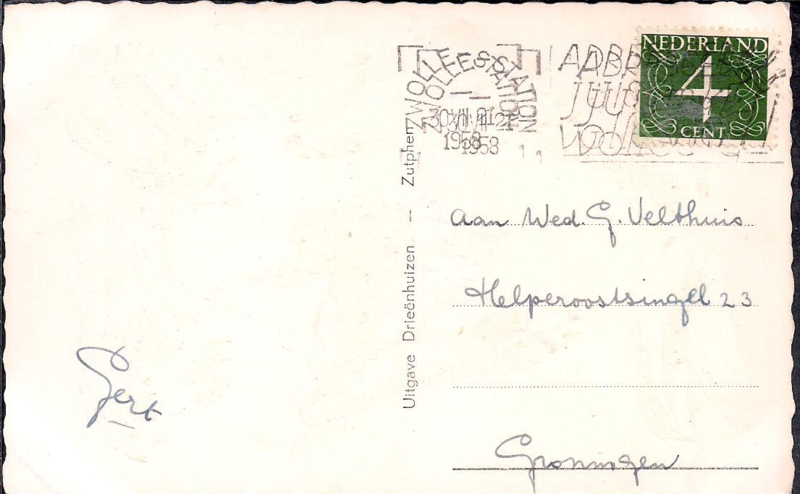 ZWOLLE STATION
30 VII 21
1958
NEDERLAND
4
CENT
Aan Wed. G. Velthuis
Helperoostsingel 23
Groningen
Gert
Uitgave Drieënhuizen — Zutphen